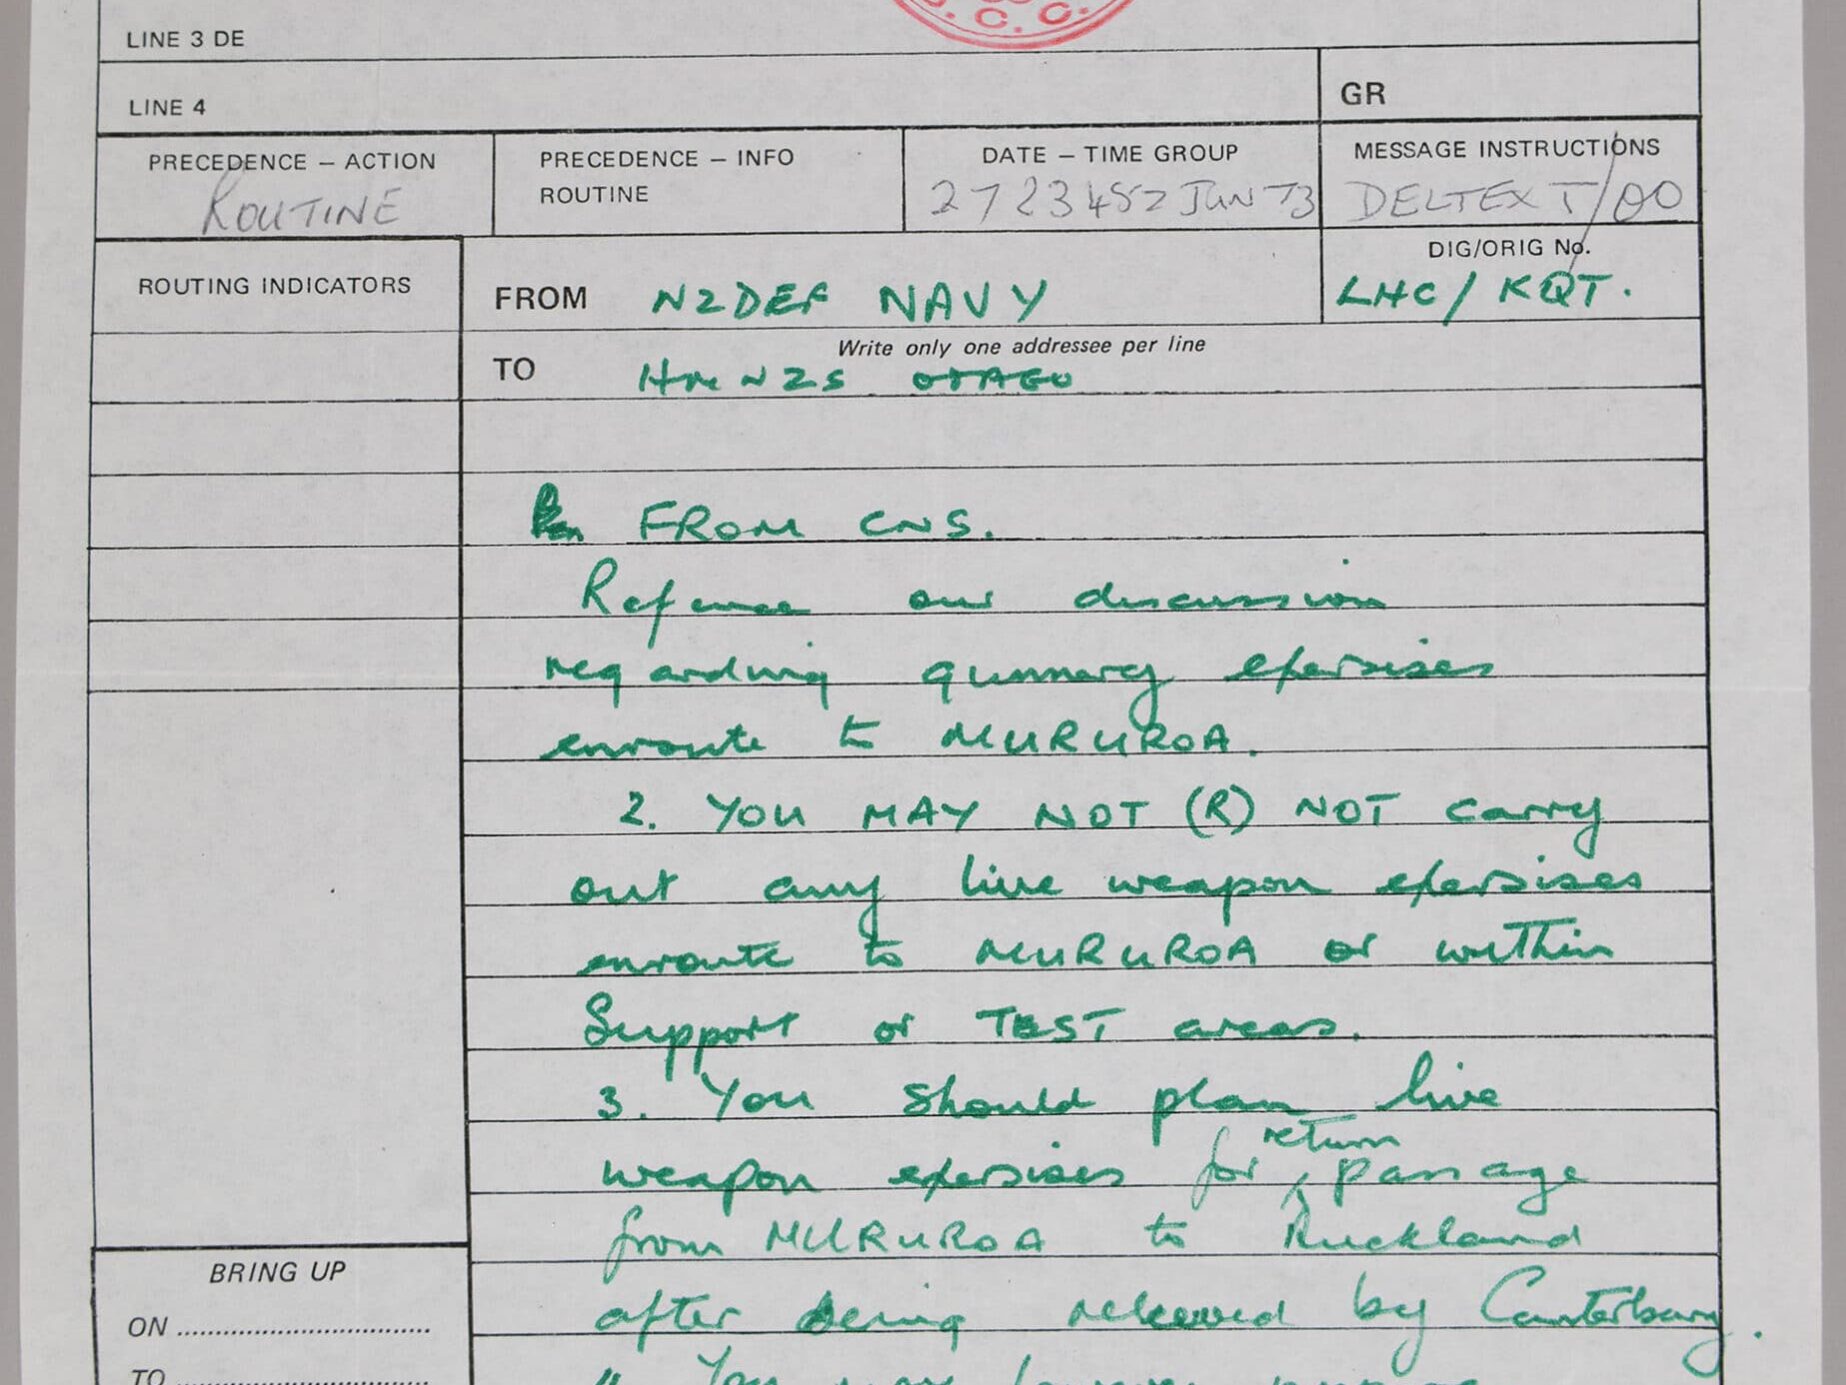 S. C. C.
LINE 3 DE
LINE 4
GR
PRECEDENCE – ACTION
ROUTINE
PRECEDENCE – INFO
ROUTINE
DATE – TIME GROUP
272345Z JUN 73
MESSAGE INSTRUCTIONS
DELTEXT/OO
ROUTING INDICATORS
FROM NZDEF NAVY
DIG/ORIG No.
LHC/KQT.
Write only one addressee per line
TO HMNZS OTAGO
FROM CNS.
Reference our discussion
regarding gunnery exersises
enroute to MURUROA.
2. YOU MAY NOT (R) NOT carry
out any live weapon exersises
enroute to MURUROA or within
Support or TEST areas.
3. You should plan live
weapon exersises for return passage
from MURUROA to Auckland
after being relieved by Canterbury.
You may however
BRING UP
ON
TO